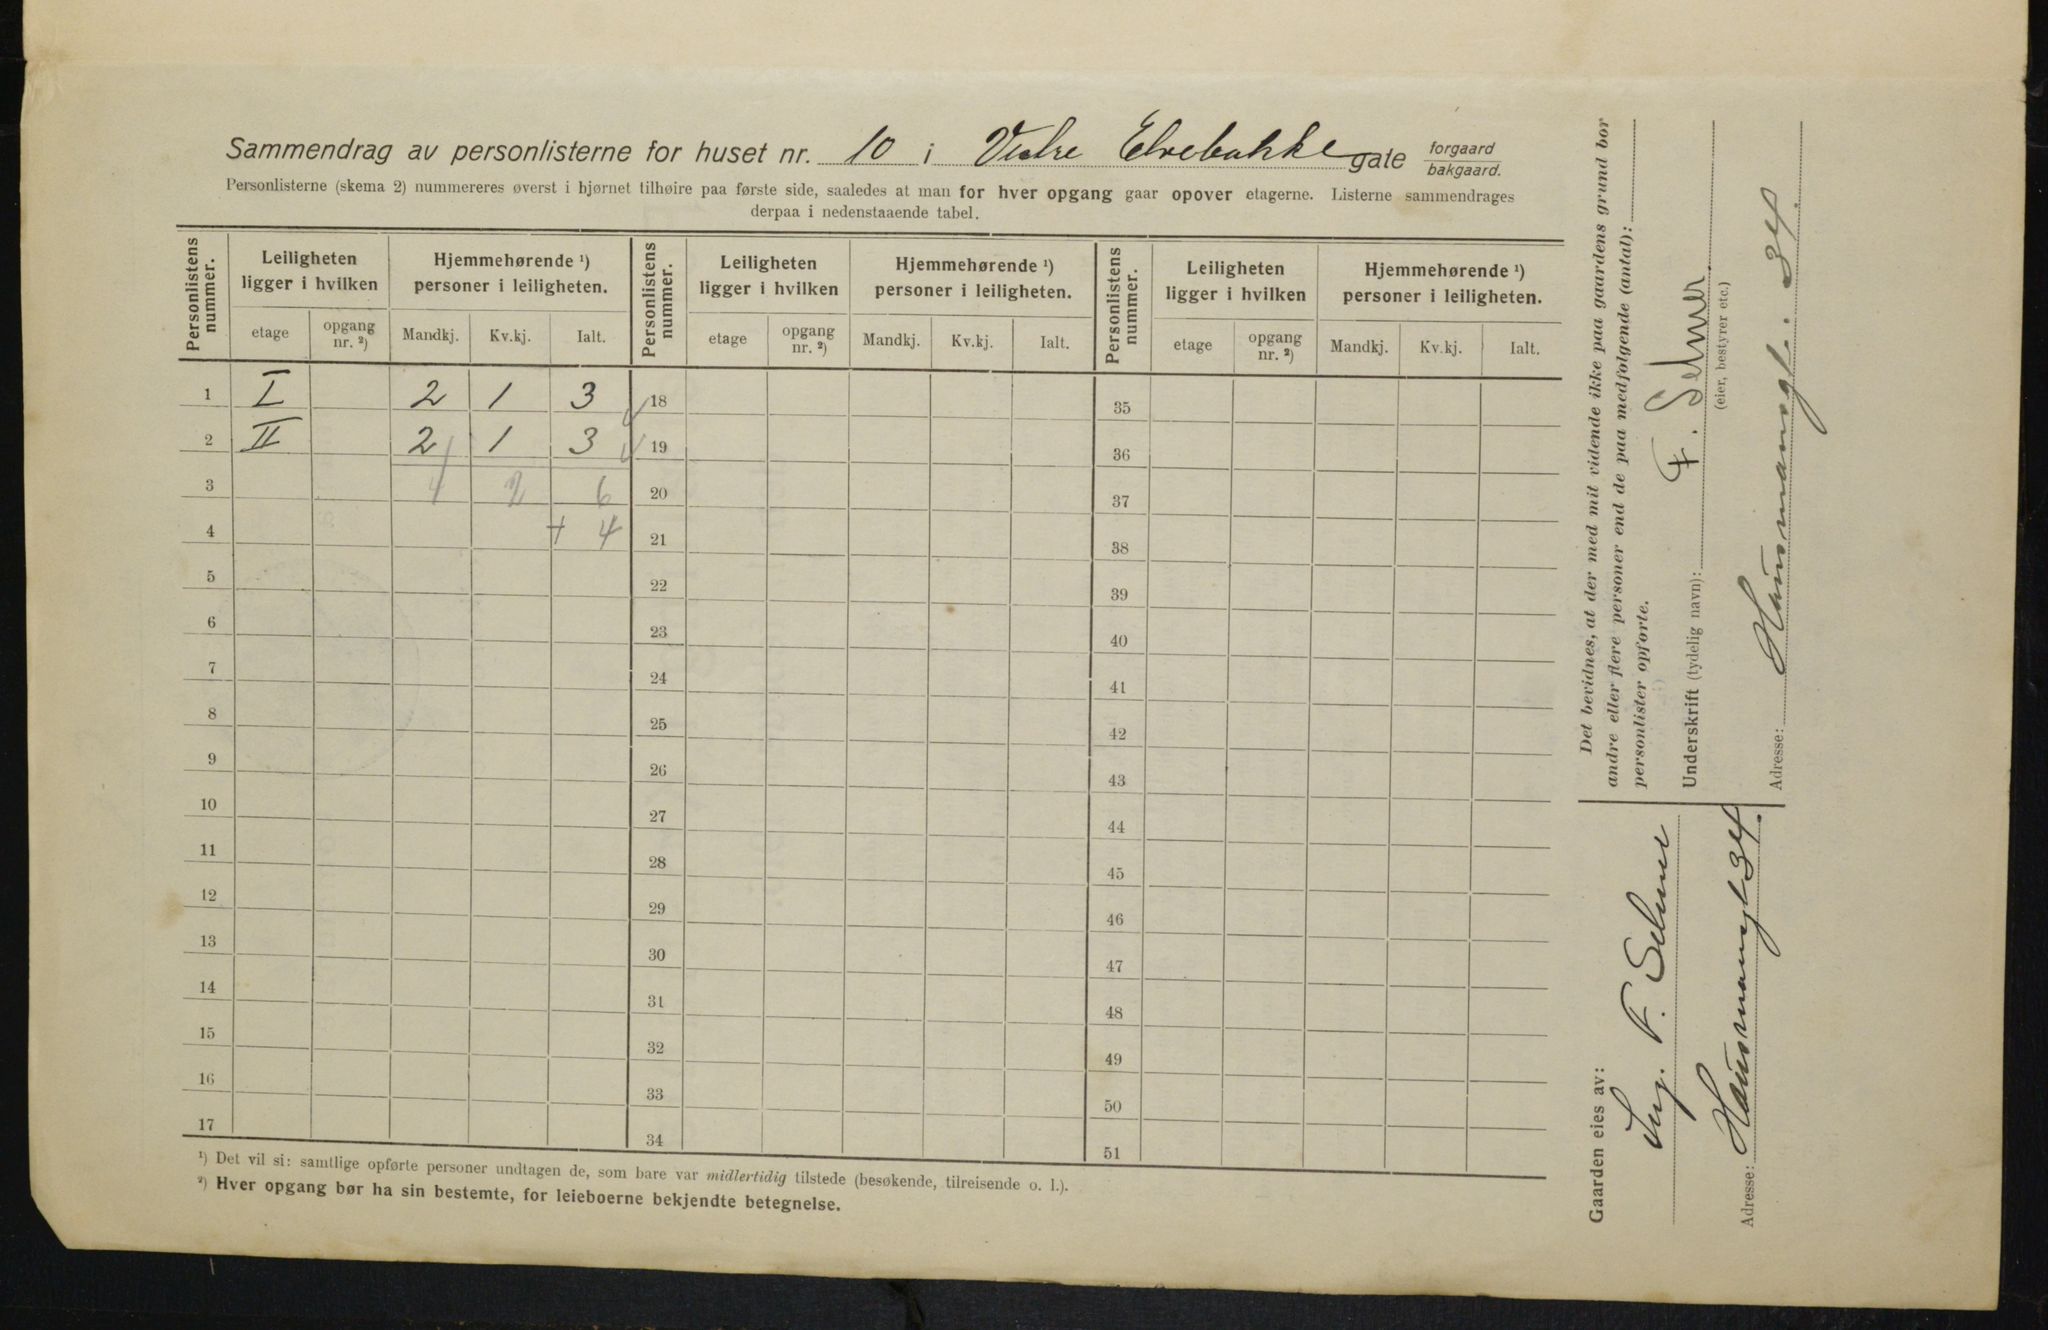 Sammendrag av personlisterne for huset nr. 10 i Vestre Elvebakke gate forgaard bakgaard.
Personlisterne (skema 2) nummereres øverst i hjørnet tilhøire paa første side, saaledes at man for hver opgang gaar opover etagerne. Listerne sammendrages
derpaa i nedenstaaende tabel.
Personlistens nummer. Leiligheten ligger i hvilken Hjemmehørende ¹) personer i leiligheten. Personlistens nummer. Leiligheten ligger i hvilken Hjemmehørende ¹) personer i leiligheten. Personlistens nummer. Leiligheten ligger i hvilken Hjemmehørende ¹) personer i leiligheten.
etage opgang nr. ²) Mandkj. Kv.kj. Ialt. etage opgang nr. ²) Mandkj. Kv.kj. Ialt. etage opgang nr. ²) Mandkj. Kv.kj. Ialt.
1 I 2 1 3 18 35
2 II 2 1 3 19 36
3 4 2 6 20 37
4 + 4 21 38
5 22 39
6 23 40
7 24 41
8 25 42
9 26 43
10 27 44
11 28 45
12 29 46
13 30 47
14 31 48
15 32 49
16 33 50
17 34 51
¹) Det vil si: samtlige opførte personer undtagen de, som bare var midlertidig tilstede (besøkende, tilreisende o. l.).
²) Hver opgang bør ha sin bestemte, for leieboerne bekjendte betegnelse.
Det bevidnes, at der med mit vidende ikke paa gaardens grund bor
andre eller flere personer end de paa medfølgende (antal):
personlister opførte.
Underskrift (tydelig navn): F. Selmer
(eier, bestyrer etc.)
Adresse: Hausmannsgt. 34.
Gaarden eies av:
Ing. F. Selmer
Adresse: Hausmannsgt 34.